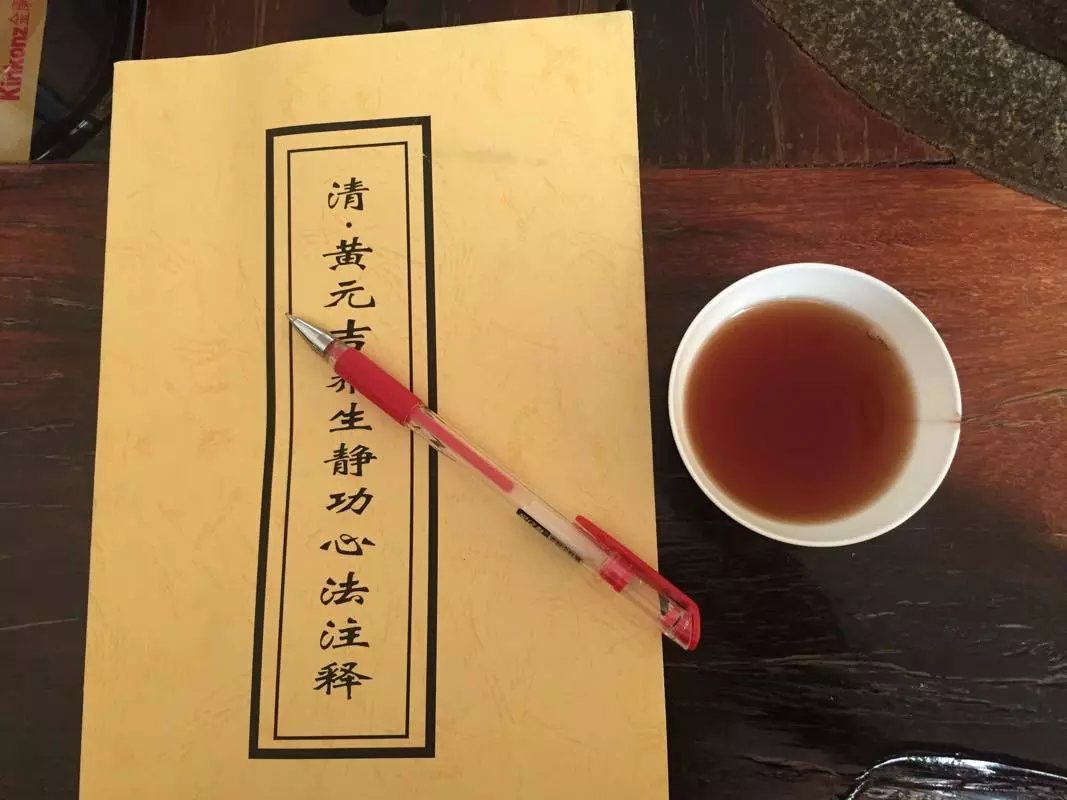 清·黄元吉养生静功心法注释
Kinkonz